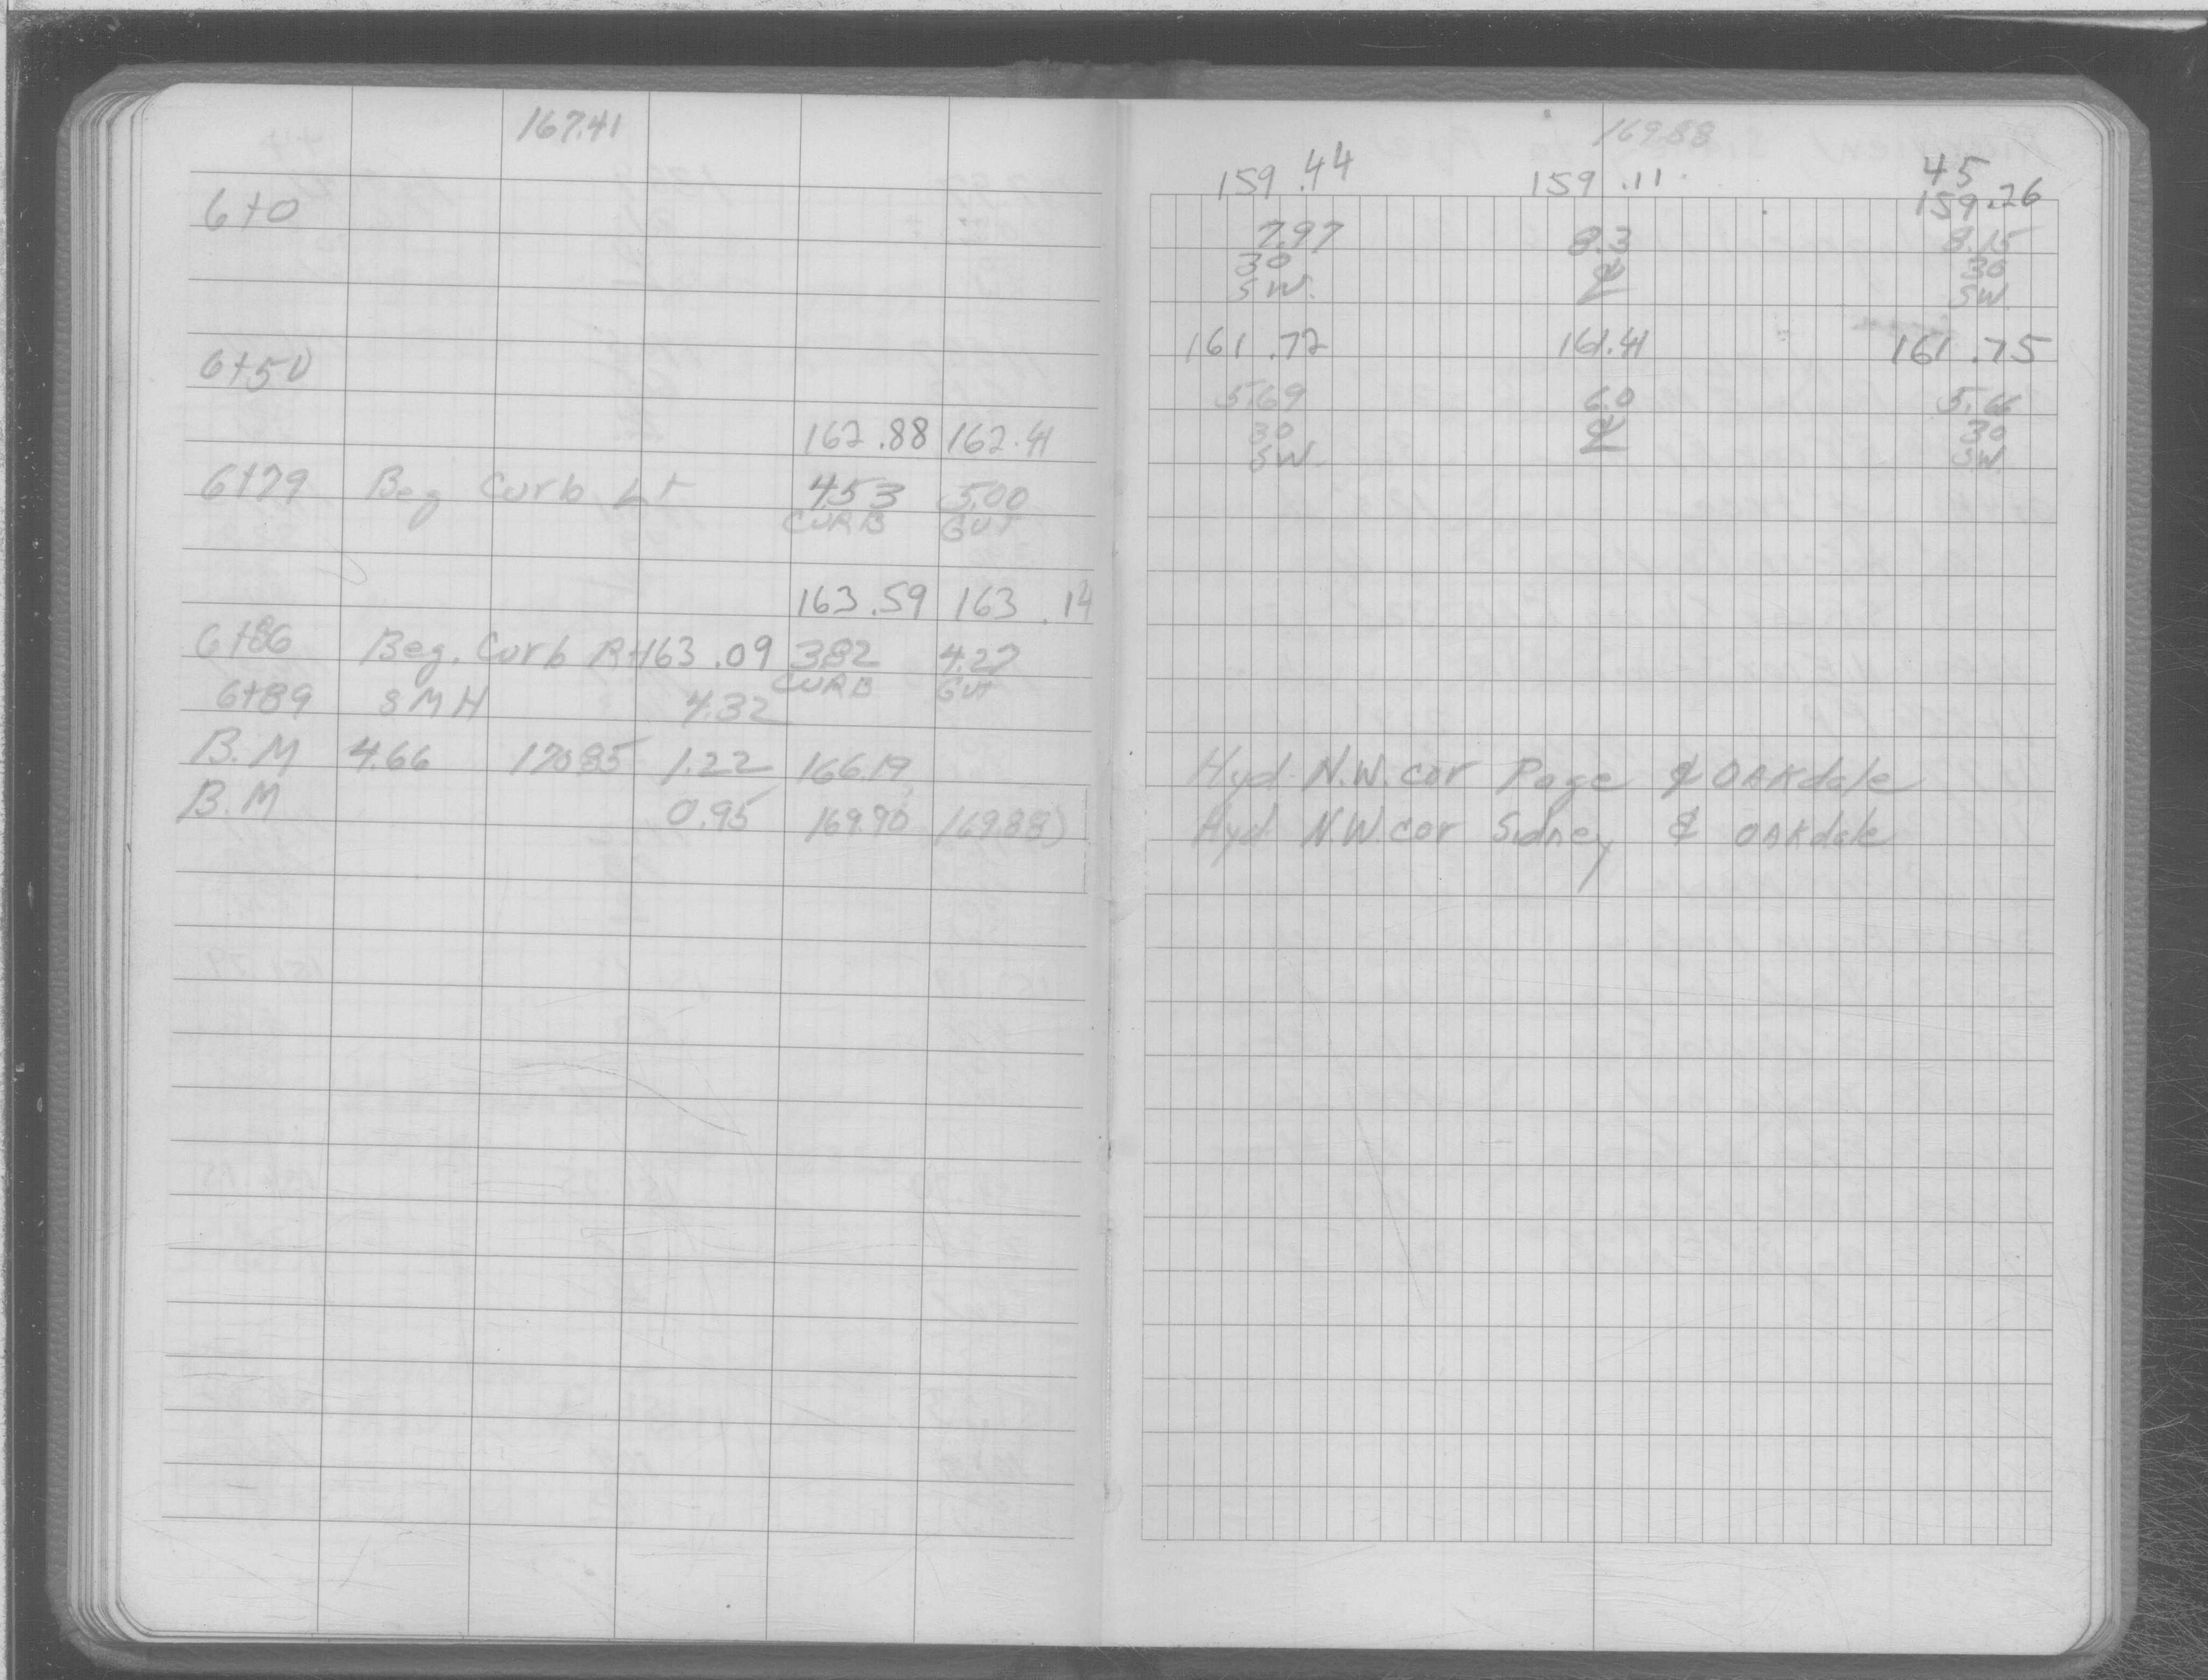 167.41
6+0
6+50
162.88 162.41
6+79 Beg Curb Lt 4.53 5.00
CURB GUT
163.59 163.14
6+86 Beg. Curb Rt 163.09 3.82 4.27
CURB GUT
6+89 SMH 4.32
B.M 4.66 170.85 1.22 166.19
B.M 0.95 169.90 (169.88)
169.88
159.44 159.11 45
159.26
7.97 8.3 8.15
30 ℄ 30
SW. SW
161.72 161.41 161.75
5.69 6.0 5.66
30 ℄ 30
SW. SW
Hyd. N.W. cor Page & OAKdale
Hyd N.W. cor Sidney & OAKdale